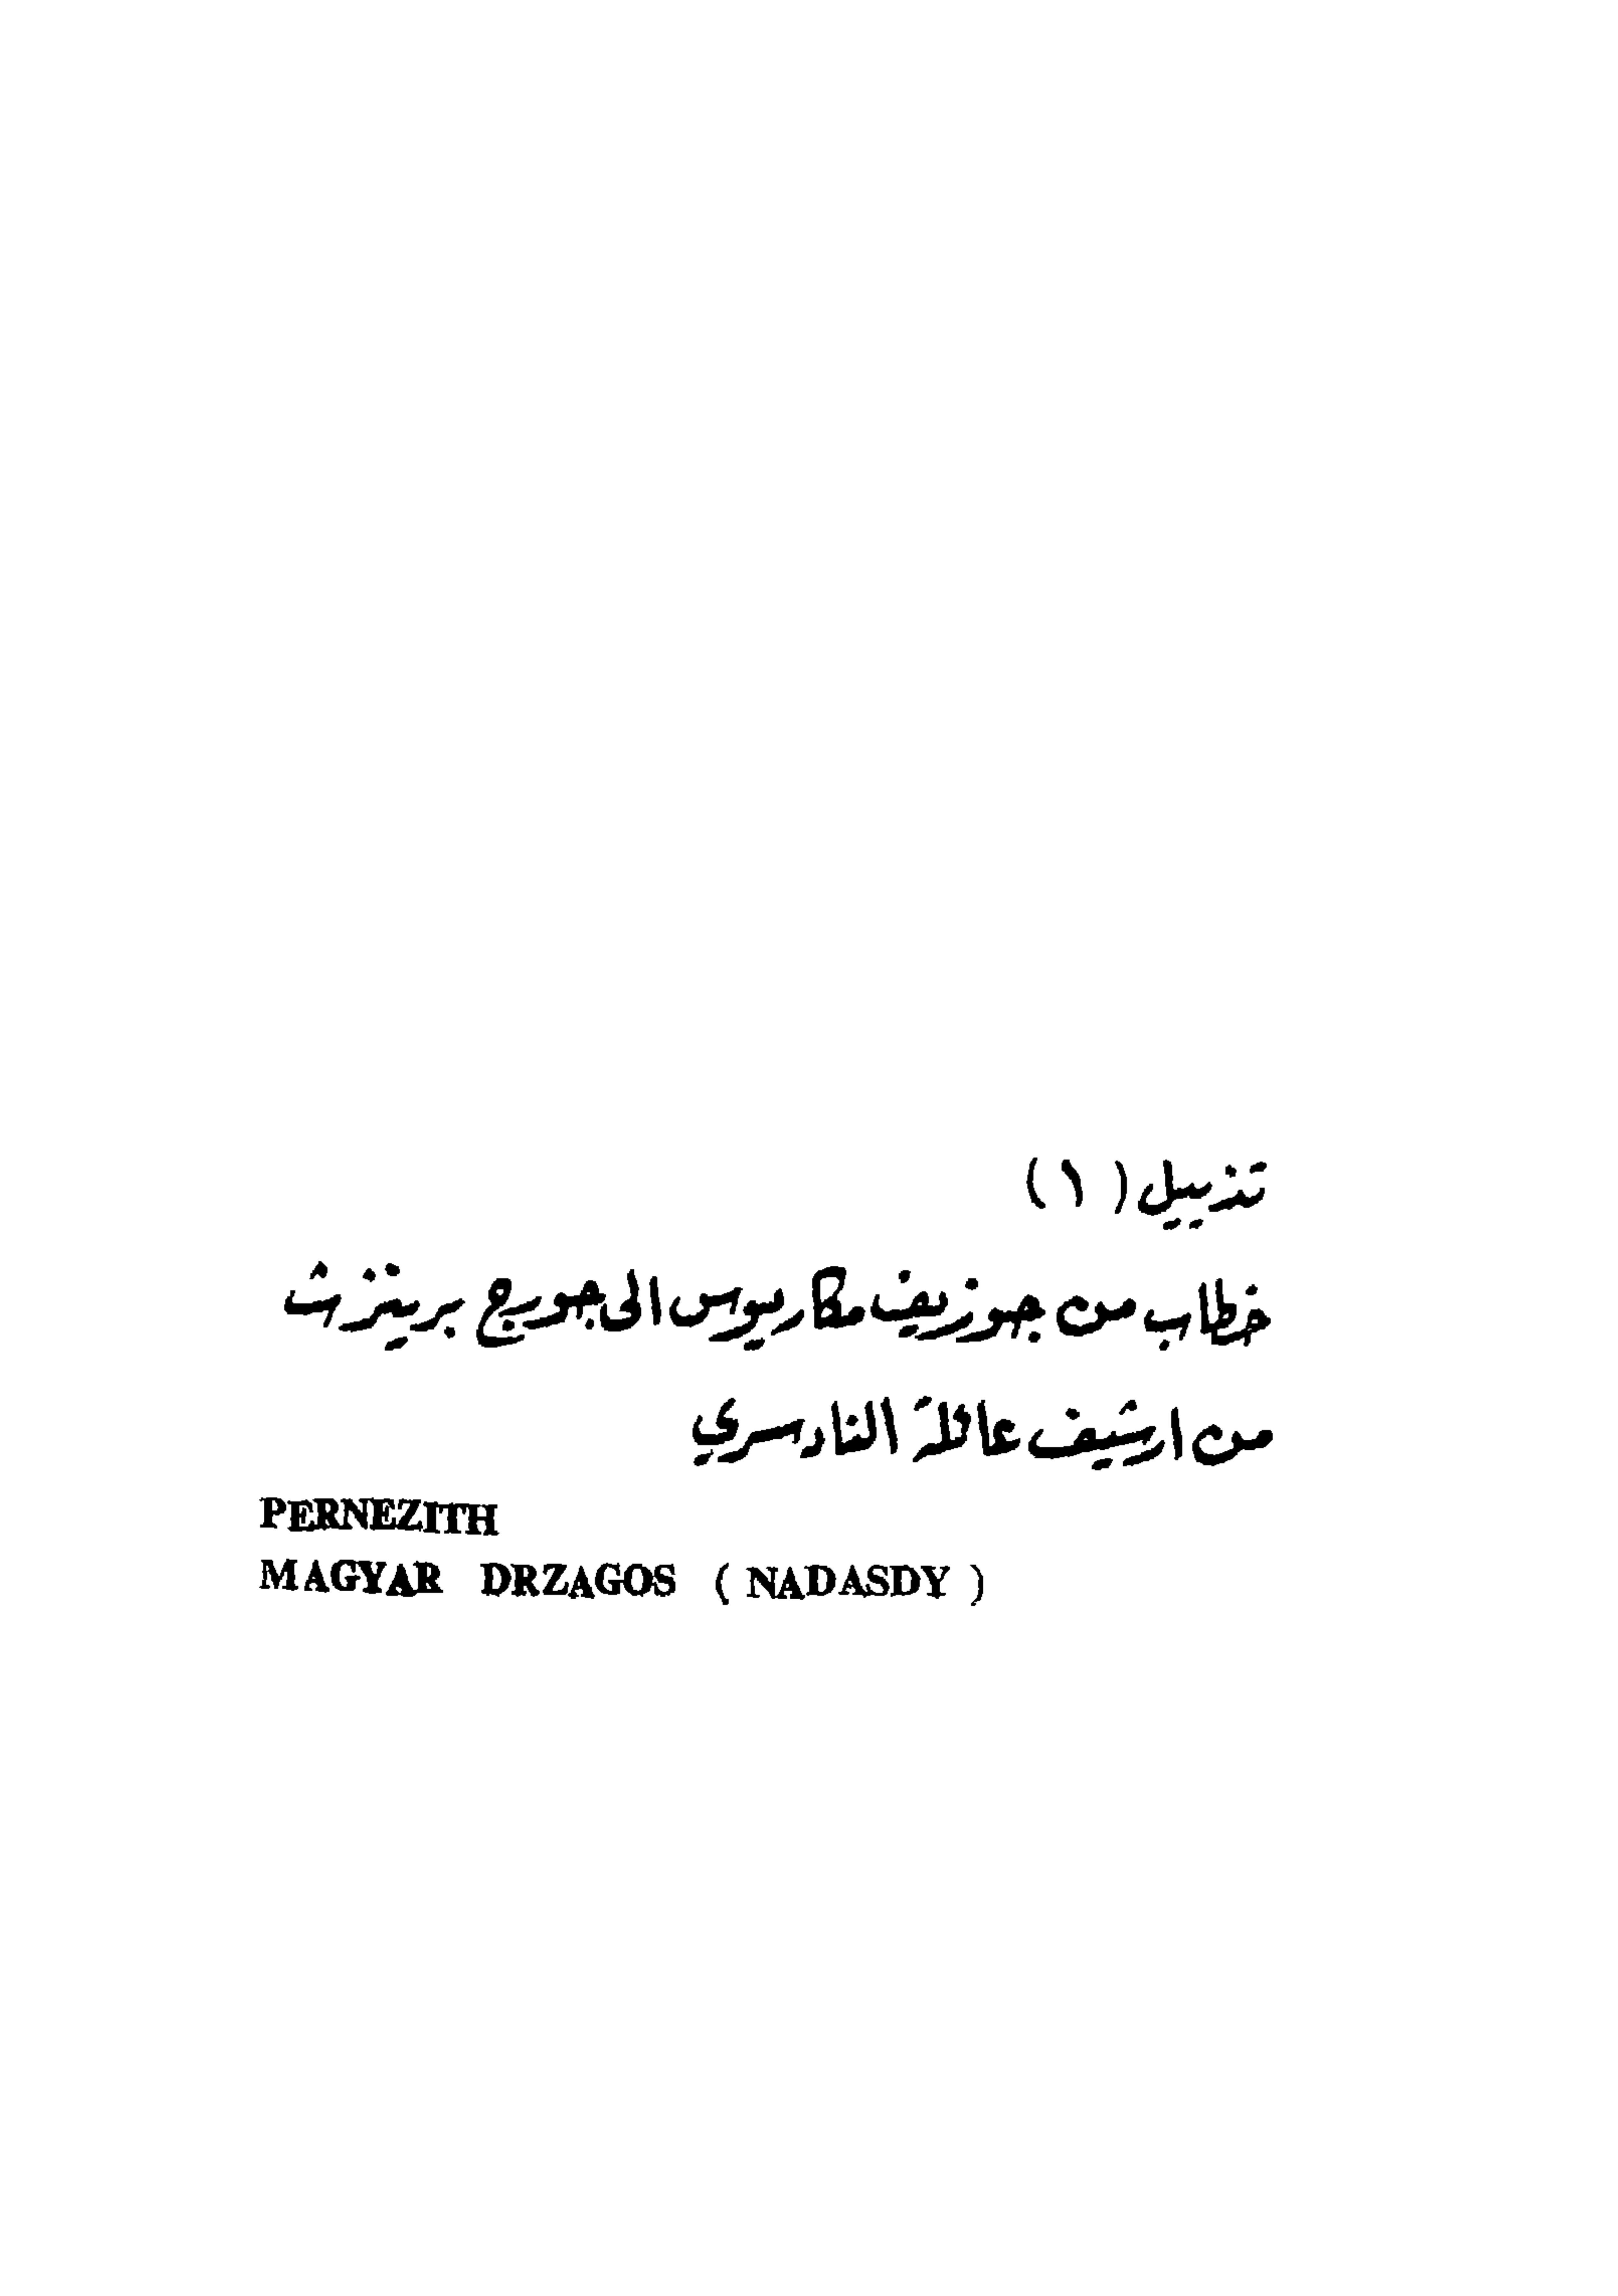 تذييل (١)
خطاب من جوزيف مكاريوس الى جوريج برينزث
من ارشيف عائلة النادسري
PERNEZITH
MAGYAR DRZAGOS (NADASDY)